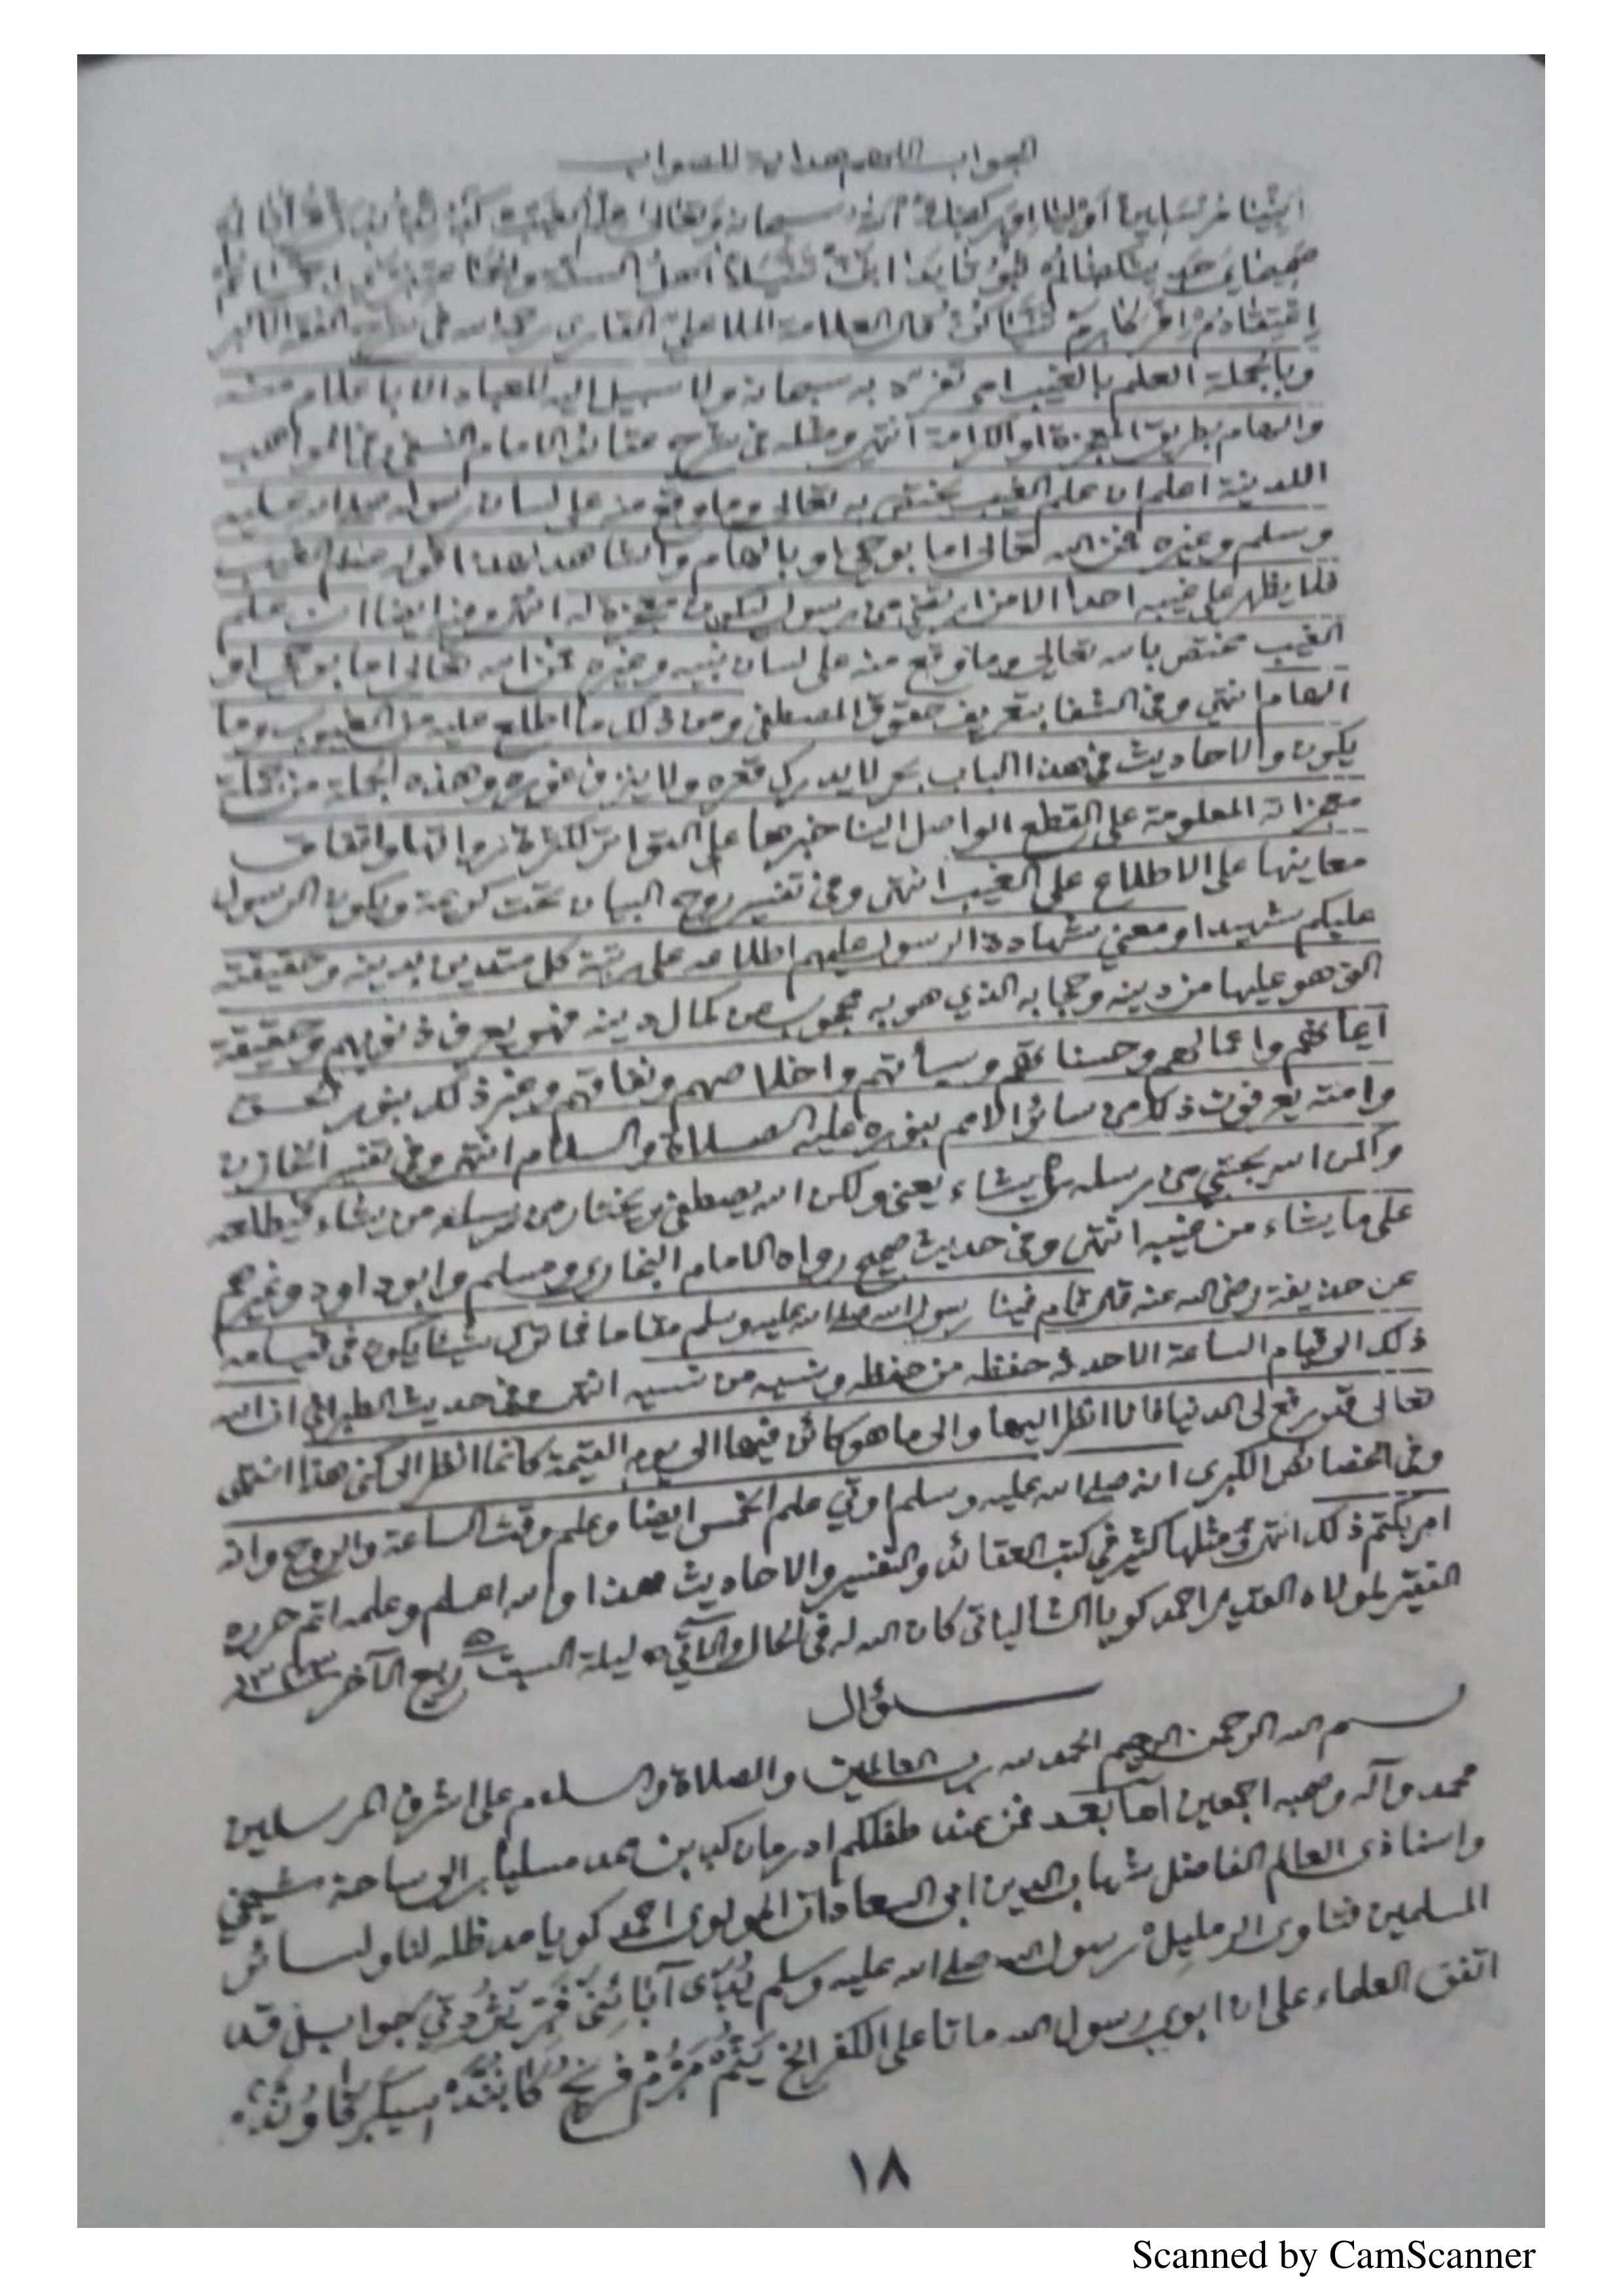 الجواب اللهم هداية للصواب
سبحانه وتعالى
اهل السنة والجماعة
قال العلامة الملا علي القاري رحمه الله في شرح الفقه الاكبر
وبالجملة العلم بالغيب امر تفرد به سبحانه ولا سبيل اليه للعباد الا باعلام منه
والهام بطريق المعجزة او الكرامة انتهى ومثله في شرح عقائد الامام النسفي وفي المواهب
اللدنية اعلم ان علم الغيب يختص به تعالى وما وقع منه على لسان رسوله صلى الله عليه
وسلم وغيره فمن الله تعالى اما بوحي او بالهام والشاهد لهذا قوله
فلا يظهر على غيبه احدا الا من ارتضى من رسول ليكون معجزة له انتهى وفيه ايضا ان علم
الغيب مختص بالله تعالى وما وقع منه على لسان نبيه وغيره فمن الله تعالى اما بوحي او
الهام انتهى وفي الشفا بتعريف حقوق المصطفى ومن ذلك ما اطلع عليه من الغيوب وما
يكون والاحاديث في هذا الباب بحر لا يدرك قعره ولا ينزف غوره وهذه الجملة من جملة
معجزاته المعلومة على القطع الواصل الينا خبرها على التواتر لكثرة رواتها واتفاق
معانيها على الاطلاع على الغيب انتهى وفي تفسير روح البيان تحت كريمة ويكون الرسول
عليكم شهيدا ومعنى شهادة الرسول عليهم اطلاعه على رتبة كل متدين بدينه وحقيقته
التي هو عليها من دينه وحجابه الذي هو به محجوب عن كمال دينه فهو يعرف ذنوبهم وحقيقة
ايمانهم واعمالهم وحسناتهم وسيأتهم واخلاصهم ونفاقهم وغير ذلك بنور الحق
وامته يعرفون ذلك من سائر الامم بنوره عليه الصلاة والسلام انتهى وفي تفسير الخازن
ولكن الله يجتبي من رسله من يشاء يعني ولكن الله يصطفي ويختار من رسله من يشاء فيطلعه
على ما يشاء من غيبه انتهى وفي حديث صحيح رواه الامام البخاري ومسلم وابوداود وغيرهم
عن حذيفة رضي الله عنه قال قام فينا رسول الله صلى الله عليه وسلم مقاما فما ترك شيئا يكون في قيامه
ذلك الى قيام الساعة الا حدثه حفظه من حفظه ونسيه من نسيه انتهى وفي حديث الطبراني ان الله
تعالى قد رفع لي الدنيا فانا انظر اليها والى ما هو كائن فيها الى يوم القيمة كانما انظر الى كفي هذا انتهى
وفي الخصائص الكبرى انه صلى الله عليه وسلم اوتي علم الخمس ايضا وعلم وقت الساعة والروح وانه
امر بكتم ذلك انتهى ومثلها كثير في كتب العقائد والتفسير والاحاديث هذا والله اعلم وعلمه اتم حرره
الفقير لمولاه القدير احمد كويا الشالياتي كان الله له في الحال والآتي ليلة السبت ٥ ربيع الآخر
سؤال
بسم الله الرحمن الرحيم الحمد لله رب العالمين والصلاة والسلام على اشرف المرسلين
محمد وآله وصحبه اجمعين اما بعد فمن عند طفلكم ادرمان كب بن محمد مسليار الى ساحة شيخي
واستاذي العالم الفاضل شهاب الدين ابي السعادات المولوي احمد كويا مد ظله لنا ولسائر
المسلمين فتاوى الرمليل رسول الله صلى الله عليه وسلم جوابل قد
اتفق العلماء على ان ابوي رسول الله ماتا على الكفر الخ
١٨
Scanned by CamScanner